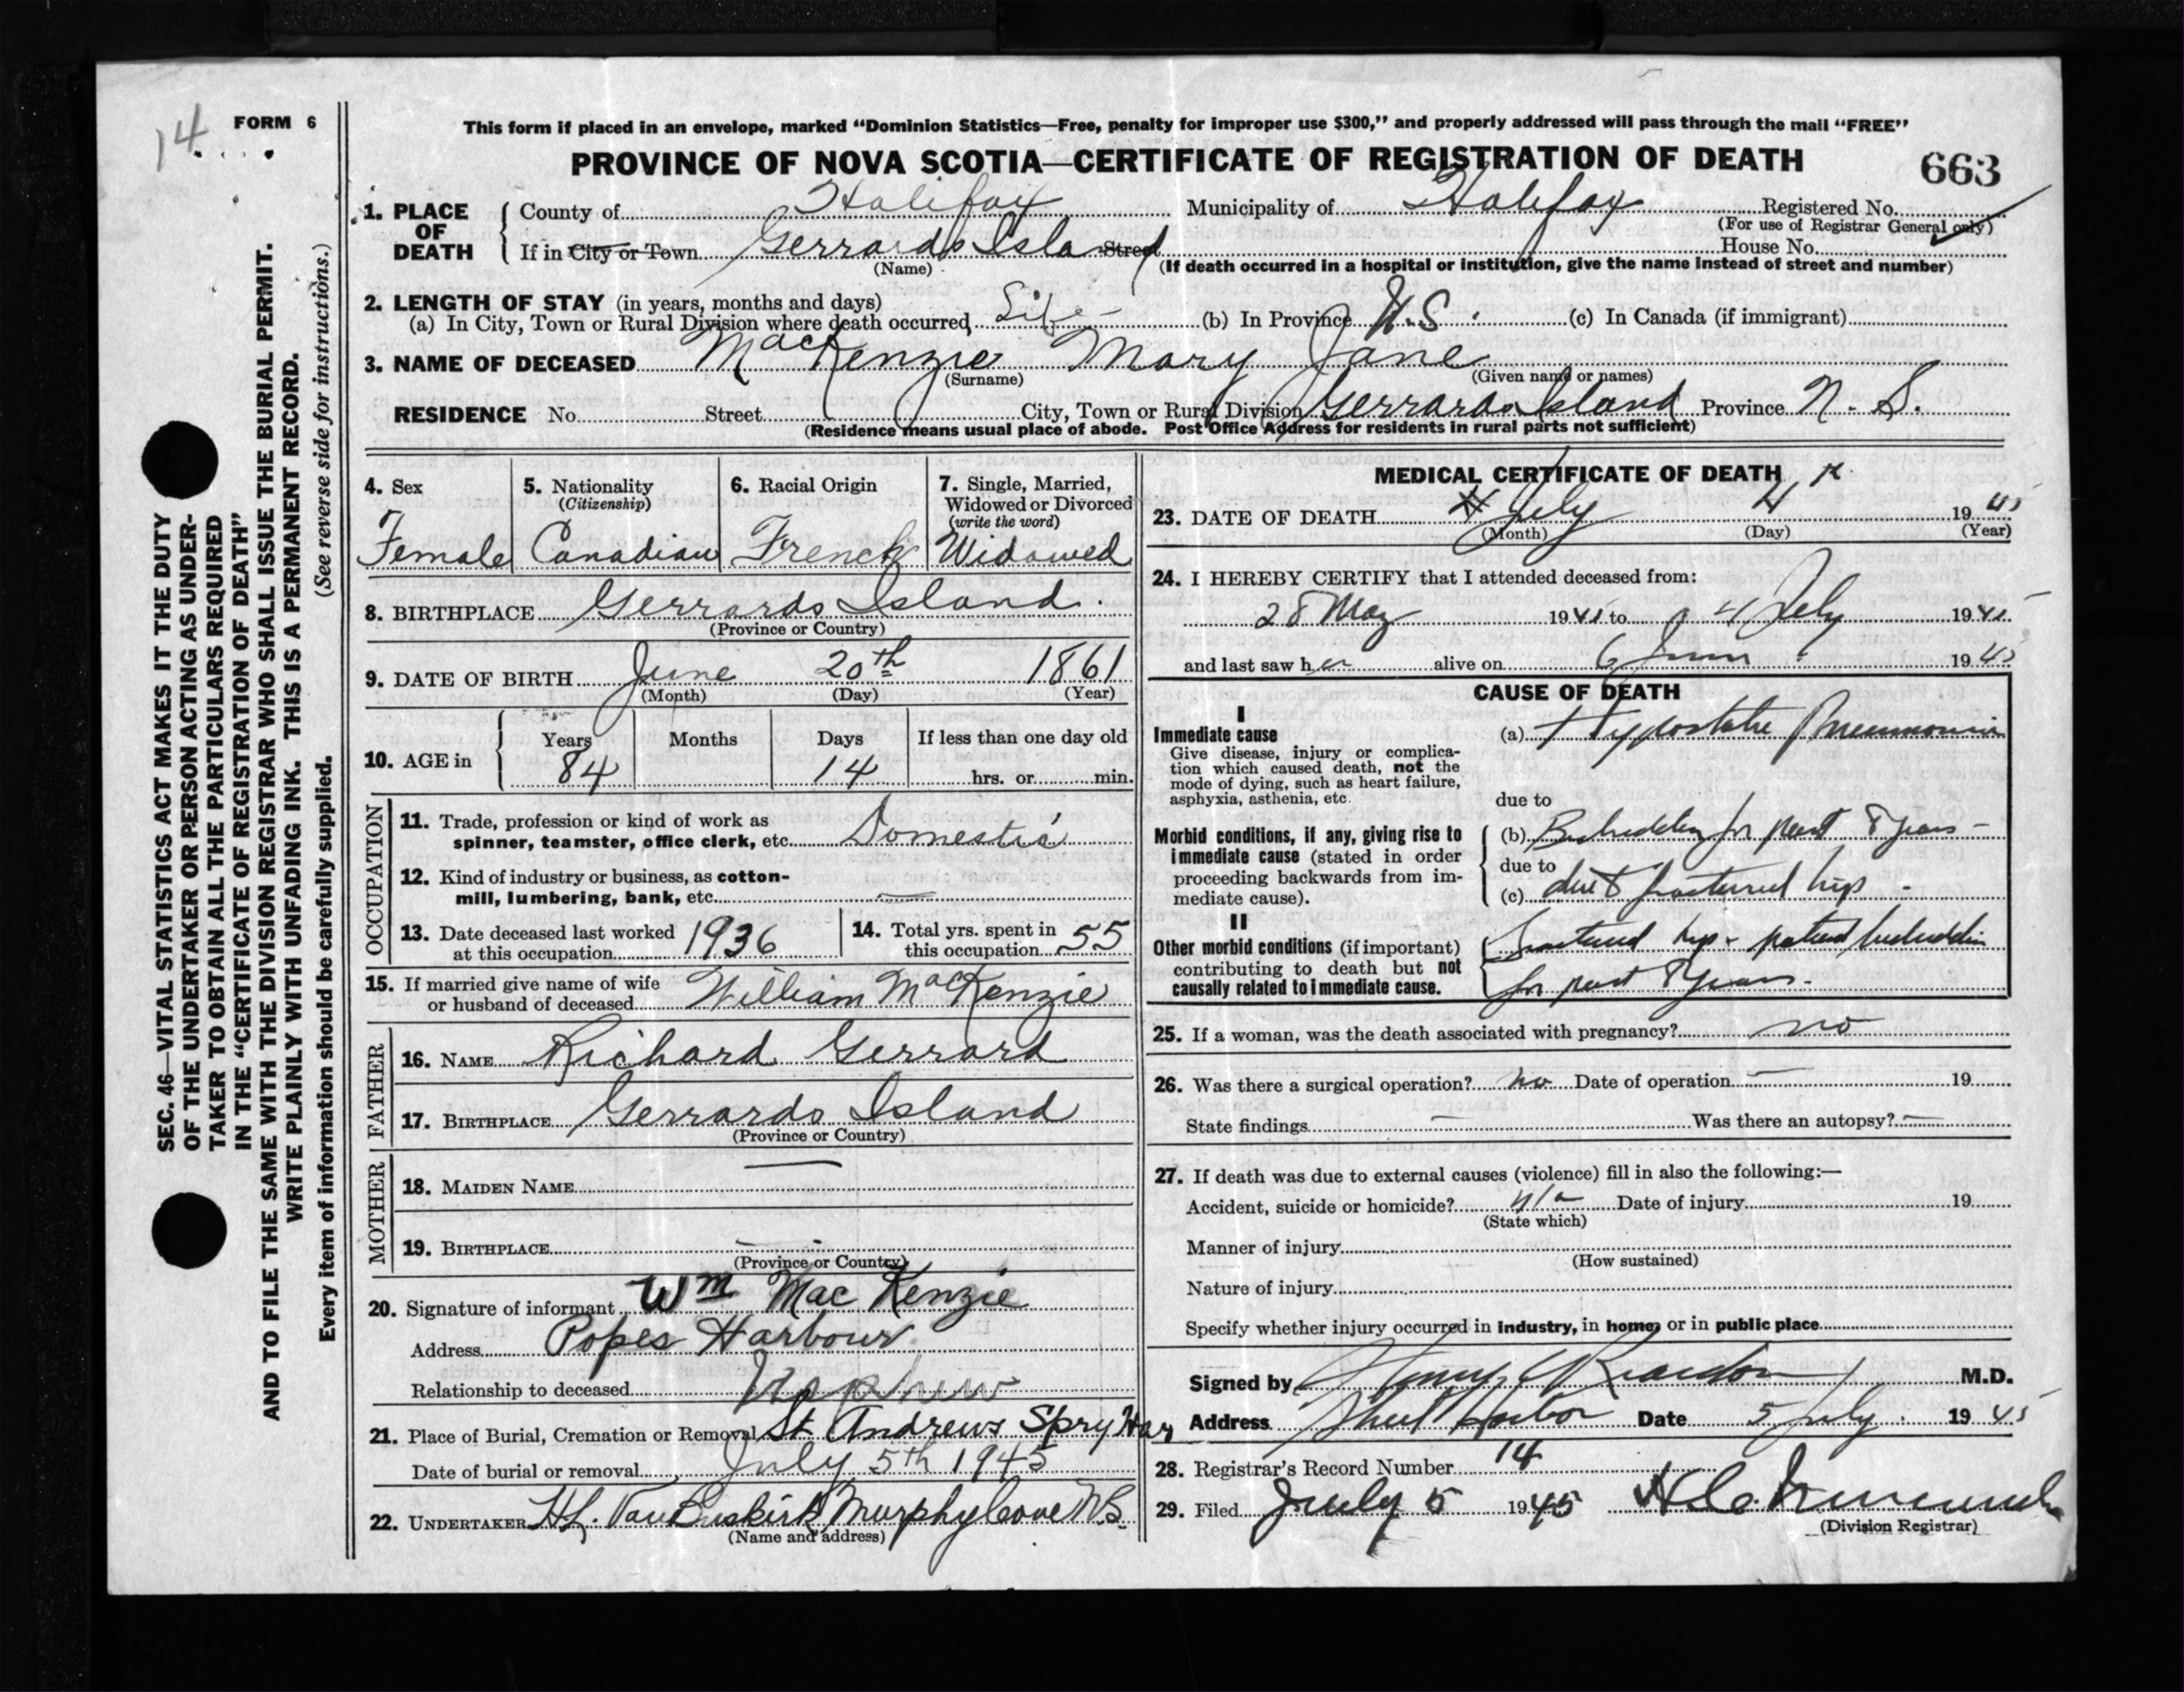 14
FORM 6
This form if placed in an envelope, marked “Dominion Statistics—Free, penalty for improper use $300,” and properly addressed will pass through the mail “FREE”
PROVINCE OF NOVA SCOTIA—CERTIFICATE OF REGISTRATION OF DEATH
663
1. PLACE OF DEATH
County of Halifax Municipality of Halifax Registered No.
(For use of Registrar General only)
If in City or Town Gerrards Island Street House No.
(Name) (If death occurred in a hospital or institution, give the name instead of street and number)
2. LENGTH OF STAY (in years, months and days)
(a) In City, Town or Rural Division where death occurred Life - (b) In Province N.S. (c) In Canada (if immigrant)
3. NAME OF DECEASED MacKenzie Mary Jane
(Surname) (Given name or names)
RESIDENCE No. Street City, Town or Rural Division Gerrards Island Province N. S.
(Residence means usual place of abode. Post Office Address for residents in rural parts not sufficient)
4. Sex
Female
5. Nationality
(Citizenship)
Canadian
6. Racial Origin
French
7. Single, Married,
Widowed or Divorced
(write the word)
Widowed
8. BIRTHPLACE Gerrards Island.
(Province or Country)
9. DATE OF BIRTH June 20th 1861
(Month) (Day) (Year)
10. AGE in
Years Months Days If less than one day old
84 14 hrs. or min.
OCCUPATION
11. Trade, profession or kind of work as
spinner, teamster, office clerk, etc. Domestic
12. Kind of industry or business, as cotton-
mill, lumbering, bank, etc. —
13. Date deceased last worked
at this occupation 1936
14. Total yrs. spent in
this occupation 55
15. If married give name of wife
or husband of deceased William MacKenzie
FATHER
16. NAME Richard Gerrard
17. BIRTHPLACE Gerrards Island
(Province or Country)
MOTHER
18. MAIDEN NAME —
19. BIRTHPLACE —
(Province or Country)
20. Signature of informant Wm Mac Kenzie
Address Popes Harbour
Relationship to deceased Nephew
21. Place of Burial, Cremation or Removal St. Andrews Spry Har
Date of burial or removal July 5th 1945
22. UNDERTAKER H.L. VanBuskirk Murphy Cove N.S.
(Name and address)
MEDICAL CERTIFICATE OF DEATH
23. DATE OF DEATH July 4th 1945
(Month) (Day) (Year)
24. I HEREBY CERTIFY that I attended deceased from:
28 May 1945 to 4 July 1945
and last saw her alive on 6 June 1945
CAUSE OF DEATH
I
Immediate cause
Give disease, injury or complica-
tion which caused death, not the
mode of dying, such as heart failure,
asphyxia, asthenia, etc.
(a) Hypostatic Pneumonia
due to
Morbid conditions, if any, giving rise to
immediate cause (stated in order
proceeding backwards from im-
mediate cause).
(b) Bedridden for past 8 years -
due to
(c) due to fractured hip -
II
Other morbid conditions (if important)
contributing to death but not
causally related to immediate cause.
fractured hip - patient bedridden
for past 8 years.
25. If a woman, was the death associated with pregnancy? no
26. Was there a surgical operation? no Date of operation — 19
State findings — Was there an autopsy? —
27. If death was due to external causes (violence) fill in also the following:—
Accident, suicide or homicide? n/a Date of injury 19
(State which)
Manner of injury
(How sustained)
Nature of injury
Specify whether injury occurred in industry, in home, or in public place
Signed by M.D.
Address Sheet Harbor Date 5 July 1945
28. Registrar's Record Number 14
29. Filed July 5 1945
(Division Registrar)
SEC. 46—VITAL STATISTICS ACT MAKES IT THE DUTY
OF THE UNDERTAKER OR PERSON ACTING AS UNDER-
TAKER TO OBTAIN ALL THE PARTICULARS REQUIRED
IN THE “CERTIFICATE OF REGISTRATION OF DEATH”
AND TO FILE THE SAME WITH THE DIVISION REGISTRAR WHO SHALL ISSUE THE BURIAL PERMIT.
WRITE PLAINLY WITH UNFADING INK. THIS IS A PERMANENT RECORD.
Every item of information should be carefully supplied. (See reverse side for instructions.)